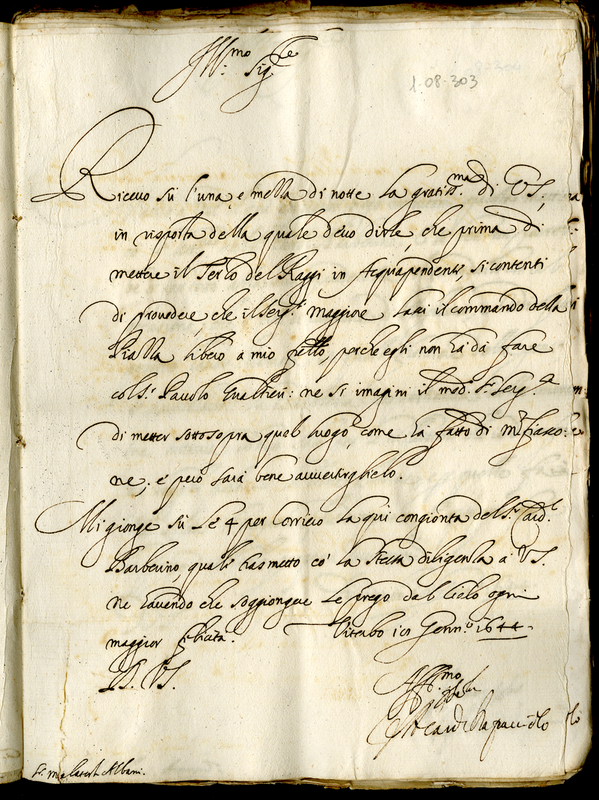 Ill.mo Sig.re
1-08-303
Ricevo sù l'una, e mezza di notte la gratiss.ma di VS.
in risposta della quale devo dirle, che prima di
mettere il Terzo del Raggi in Acquapendente, si contenti
di provedere che il Serg.te maggiore lassi il commando della
Piazza libero a mio fr̃ello, perche egli non hà da fare
col S.r Pavolo Gualtieri: ne si imagini il med.o S.r Serg.te
di metter sottosopra quel luogo, come hà fatto di
ne; e però sarà bene avvertirglielo.
Mi gionge sù le 4 per Corriero la qui congionta del S.r Card.l
Barberino, quale trasmetto cõ la stessa diligenza a VS.
Ne havendo che soggiongere le prego dal Cielo ogni
maggior felicità. Viterbo Genn.o 1644
D. VS.
Aff.mo
Il Card.